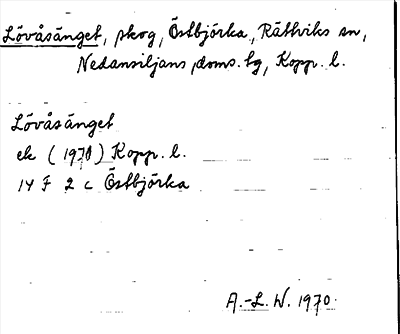 Lövåsänget, skog, Östbjörka, Rättviks sn,
Nedansiljans doms. tg, Kopp. l.
Lövåsänget
ek (1970) Kopp. l.
14 F 2 c Östbjörka
A.-L. W. 1970.